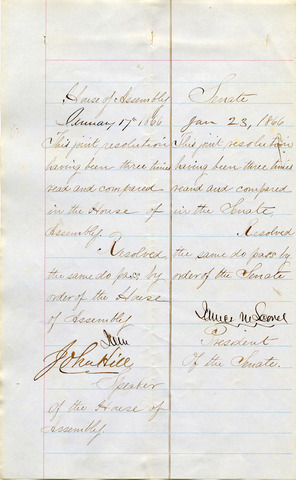 House of Assembly
January 17th 1866
This joint resolution
having been three times
read and compared
in the House of
Assembly.
Resolved
the same do pass by
order of the House
of Assembly
John Hill
Speaker
of the House of
Assembly.
Senate
Jan 23, 1866
This joint resolution
having been three times
read and compared
in the Senate
Resolved
the same do pass by
order of the Senate
James M. Scovel
President
Of the Senate.